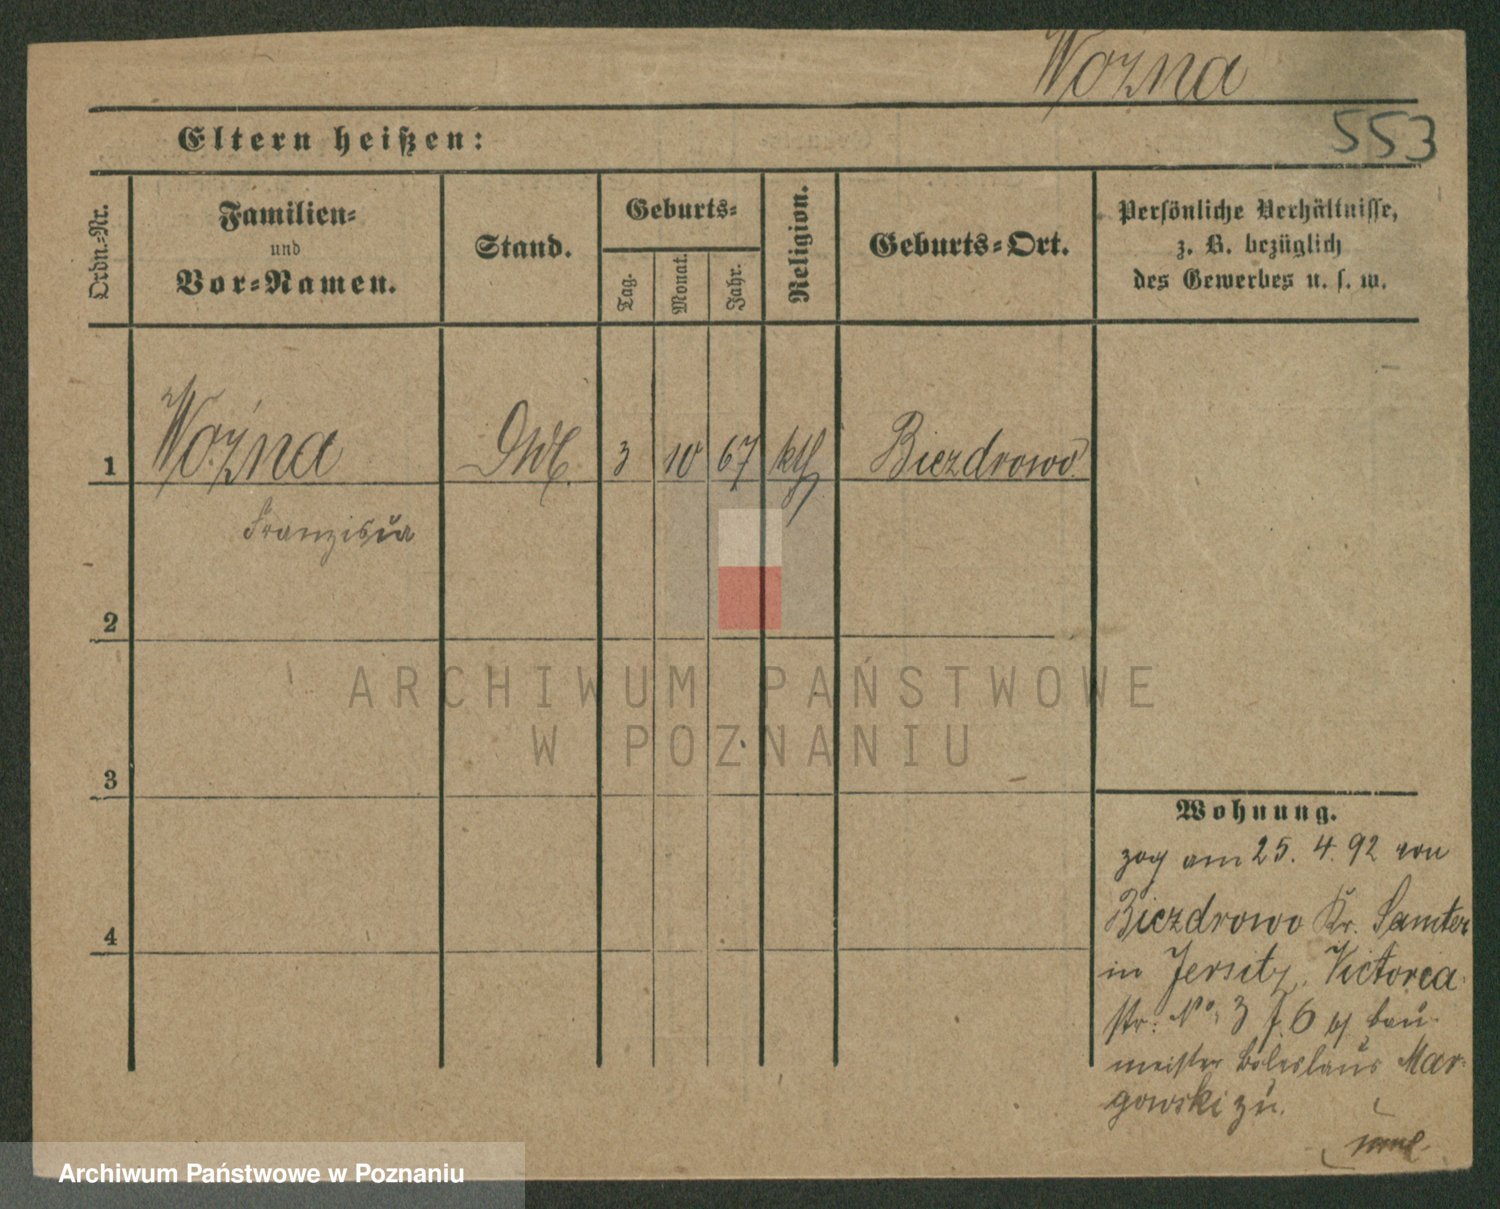 Woźna
553
Eltern heißen:
Ordn.-Nr.
Familien-
und
Vor-Namen.
Stand.
Geburts-
Tag.
Monat.
Jahr.
Religion.
Geburts-Ort.
Persönliche Verhältnisse,
z. B. bezüglich
des Gewerbes u. s. w.
1
Woźna
3
10
67
kth
Biezdrowo
Franziska
2
3
4
Wohnung.
zog am 25. 4. 92 von
Biezdrowo Kr. Samter
in Jersitz, Victoria-
str: No. 3 / 6 bei Bau-
meister Boleslaus Mar-
gowski zu.
ARCHIWUM PAŃSTWOWE
W POZNANIU
Archiwum Państwowe w Poznaniu